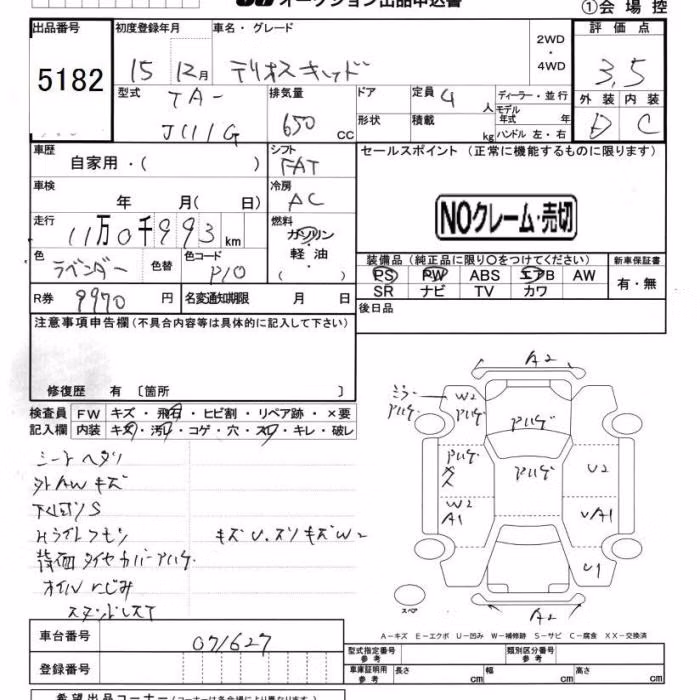 オークション出品申込書
①会場控
出品番号 初度登録年月 車名・グレード 2WD・4WD 評価点
5182 15 12月 テリオスキッド 3,5
型式 排気量 ドア 定員 ディーラー・並行 外装 内装
TA- 4人 モデル年式 年 D C
J111G 650 CC 形状 積載 kg ハンドル 左・右
車歴 シフト セールスポイント(正常に機能するものに限ります)
自家用・( ) FAT
車検 冷房
年 月( 日) AC NOクレーム・売切
走行 燃料
11万0千993km ガソリン・軽油・( )
色 色替 色コード 装備品(純正品に限り○をつけてください) 新車保証書
ラベンダー P10 PS PW ABS エアB AW 有・無
SR ナビ TV カワ
R券 9970円 名変通知期限 月 日 後日品
注意事項申告欄(不具合内容等は具体的に記入して下さい)
修復歴 有〔箇所 〕
検査員 FW キズ・飛石・ヒビ割・リペア跡・×要
記入欄 内装 キズ・汚れ・コゲ・穴・スレ・キレ・破レ
シートヘタリ
外AWキズ
下回りS
Hライトクモリ キズU.スリキズW2
背面タイヤカバーアハゲ
オイルにじみ
A2
ミラーアハゲ W2アハゲ アハゲ
アハゲ アハゲ U2
W2
A1 UA1
U1
スペ A2
A-キズ E-エクボ U-凹み W-補修跡 S-サビ C-腐食 XX-交換済
車台番号 071627
型式指定番号 参考 類別区分番号 参考
登録番号 車庫証明用 参考 長さ cm 幅 cm 高さ cm
希望出品コーナー(コーナーは各会場により異なります)